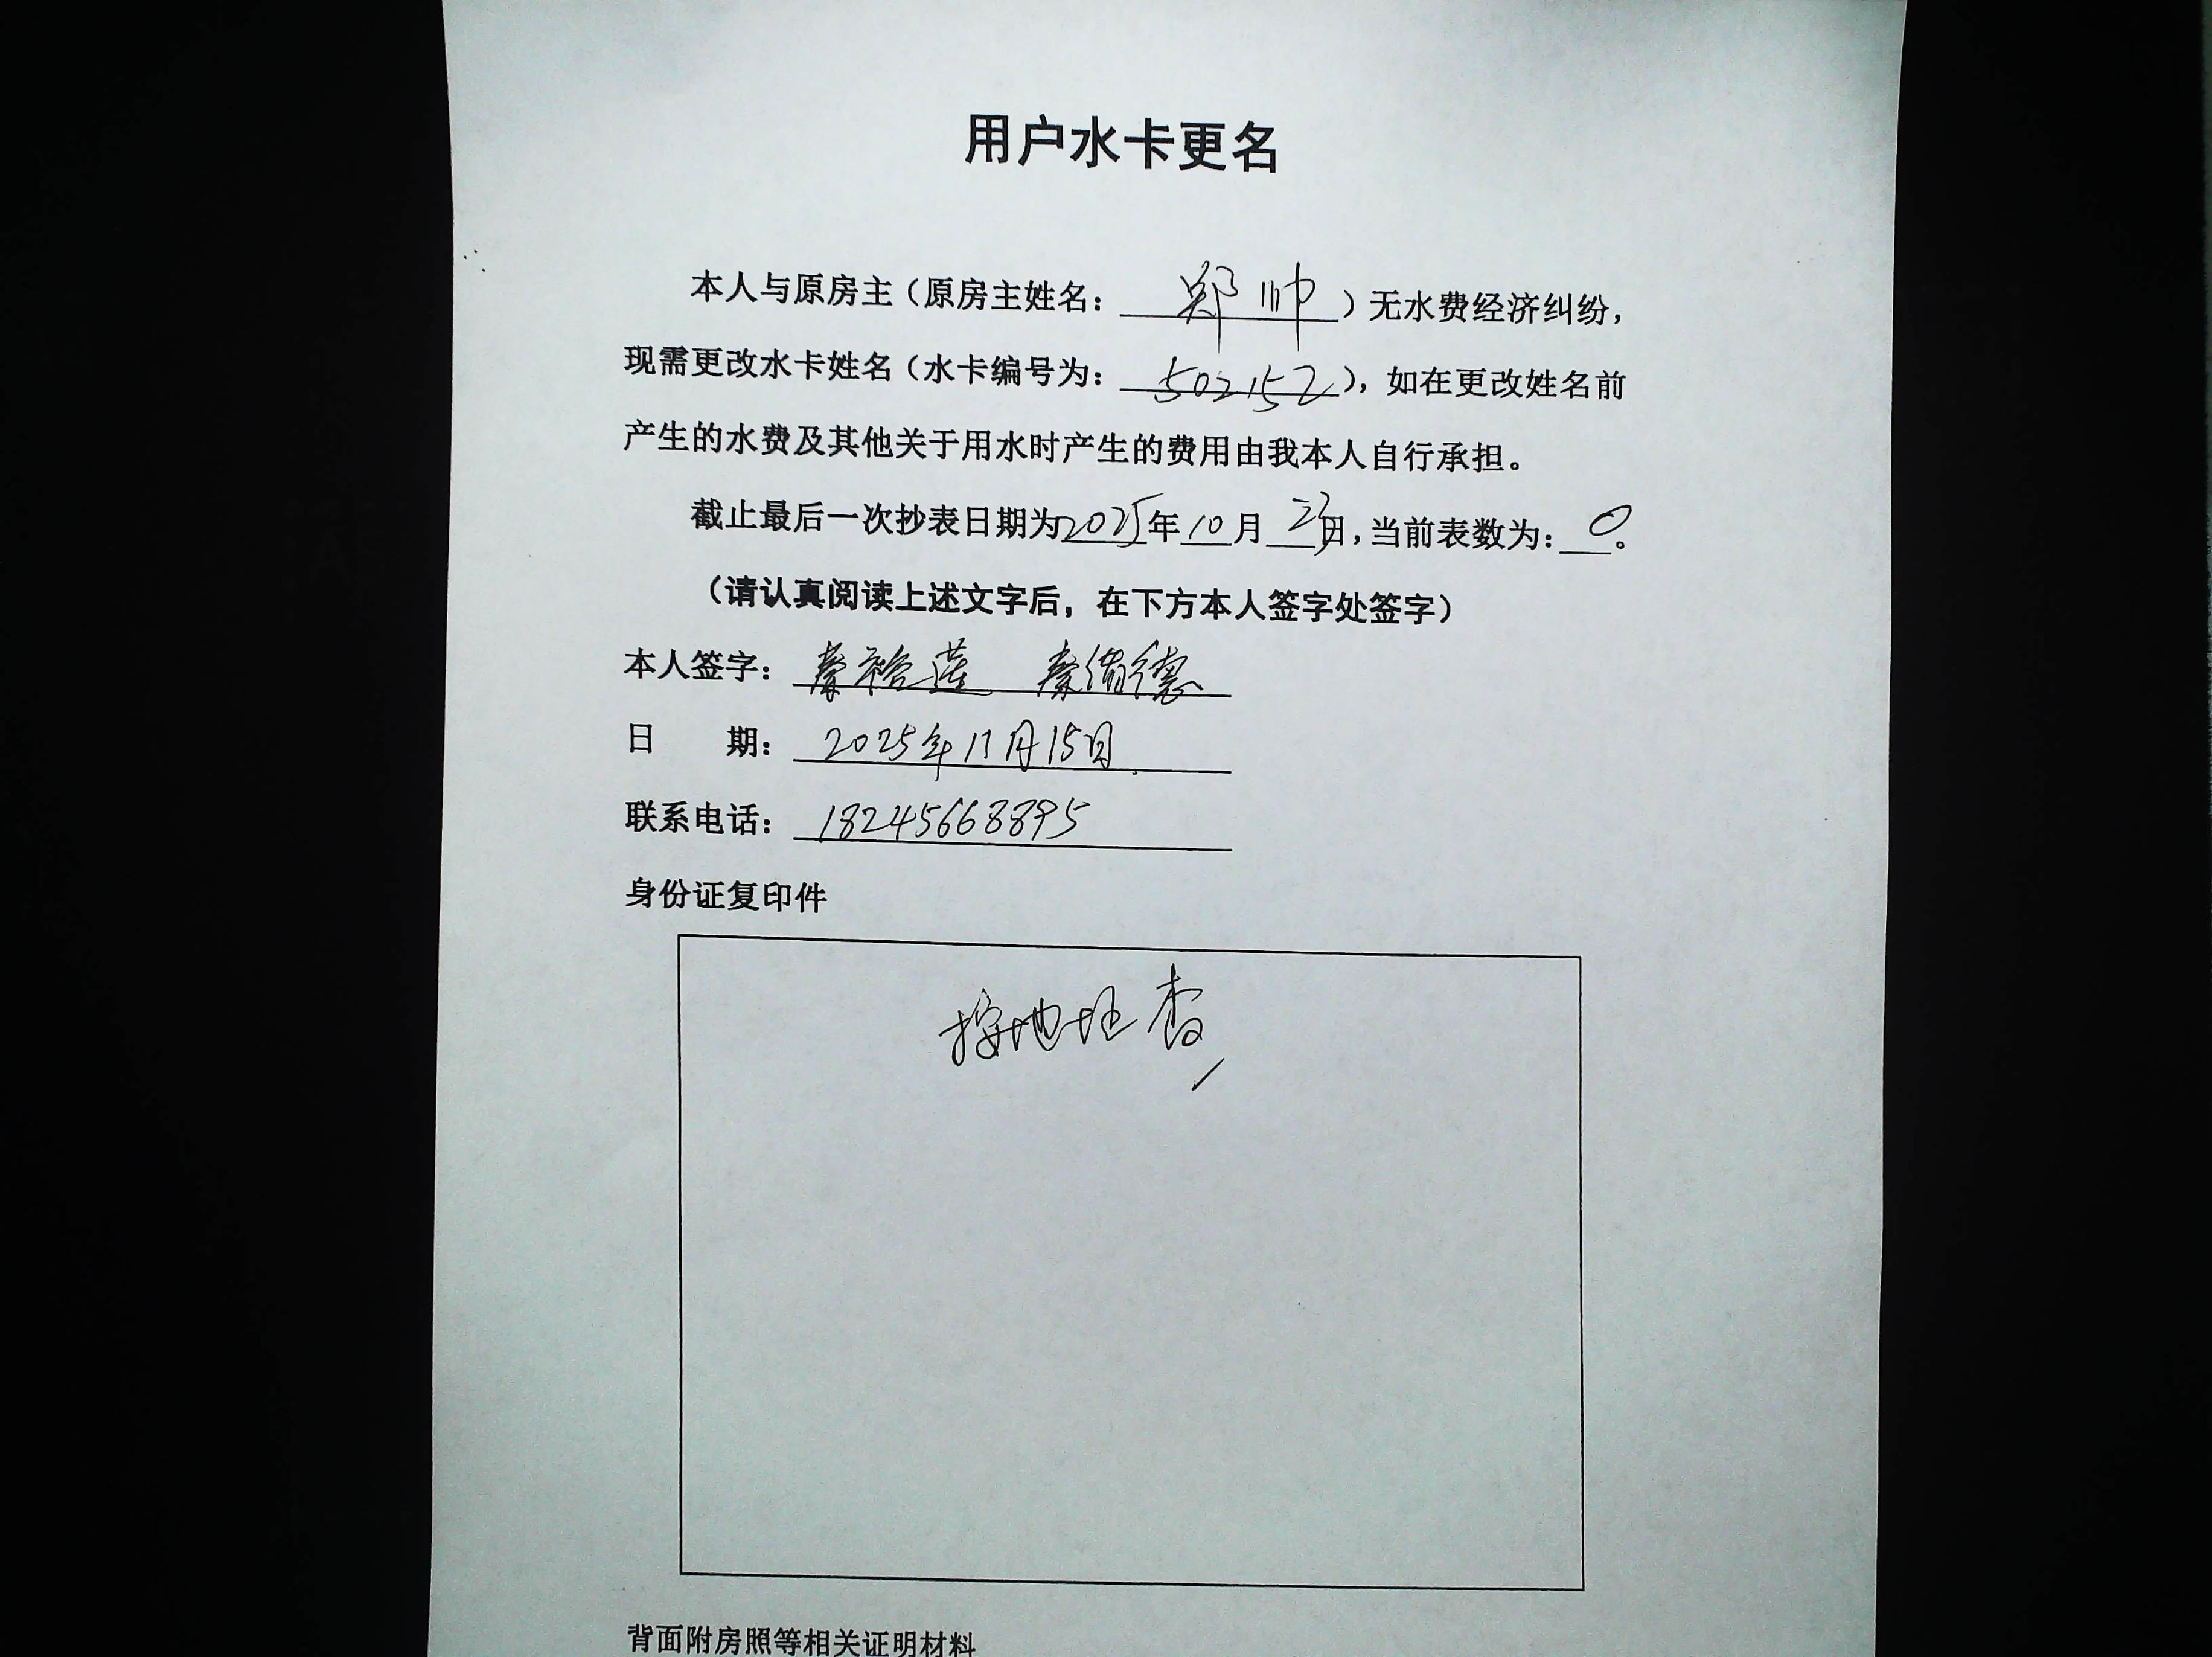 用户水卡更名
本人与原房主（原房主姓名：郑帅）无水费经济纠纷，
现需更改水卡姓名（水卡编号为：502152），如在更改姓名前
产生的水费及其他关于用水时产生的费用由我本人自行承担。
截止最后一次抄表日期为2025年10月23日，当前表数为：0。
（请认真阅读上述文字后，在下方本人签字处签字）
本人签字：秦裕莲 秦绪德
日 期：2025年11月15日
联系电话：18245668895
身份证复印件
按地址查
背面附房照等相关证明材料